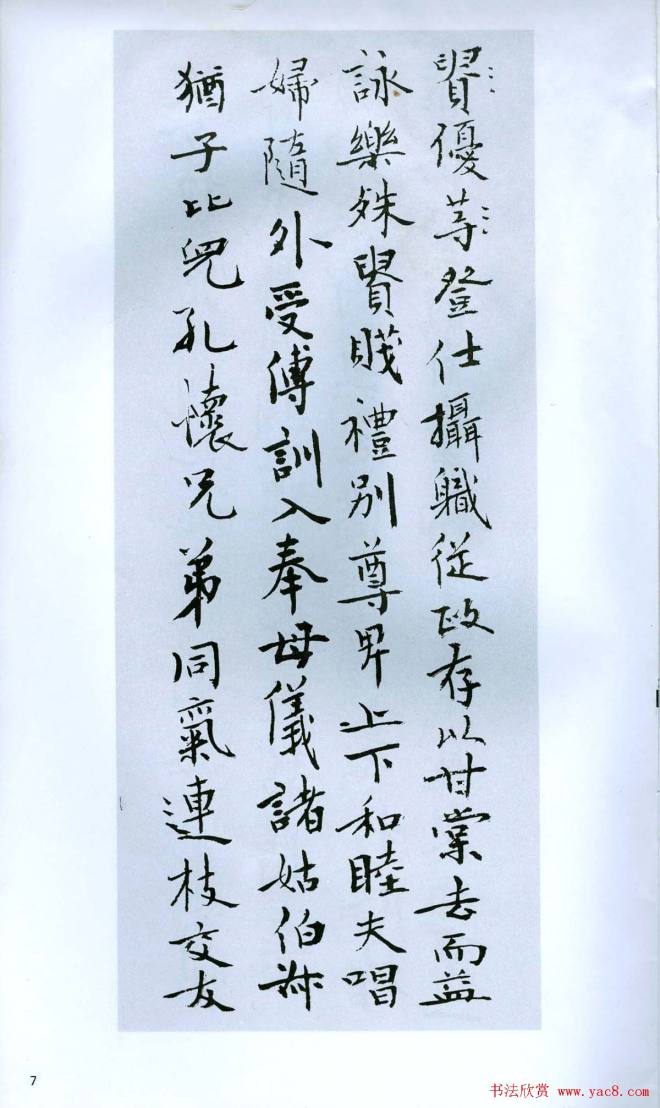 優登仕攝職從政存以甘棠去而益
詠樂殊貴賤禮別尊卑上下和睦夫唱
婦隨外受傅訓入奉母儀諸姑伯叔
猶子比兒孔懷兄弟同氣連枝交友
7
书法欣赏 www.yac8.com